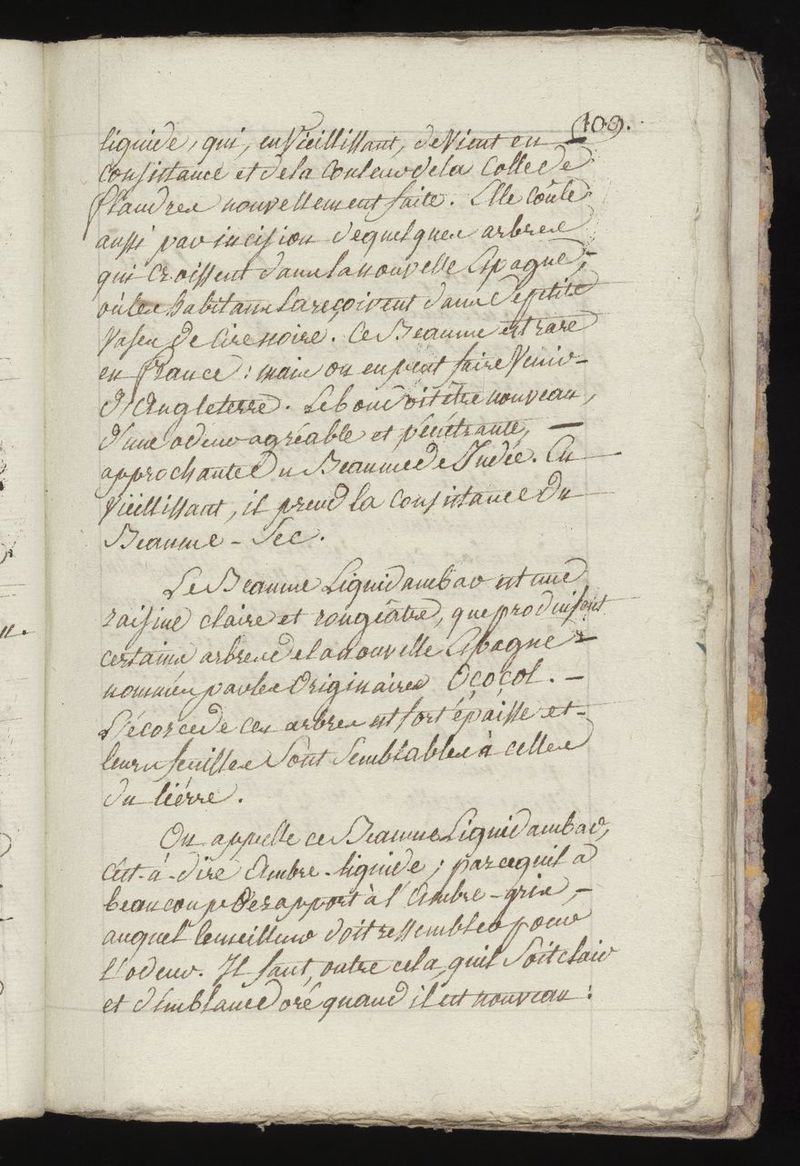 109.
liquide, qui, en Vieillissant, deVient en
consistance et de la Couleur de la Colle de
flandres nouvellement faite. Elle Coûle
aussi par incision de quelques arbres
qui Croissent dans la nouvelle Espagne,
où les habitans La reçoivent dans de petits
Vases de Cire noire. Ce Beaume est rare
en france : mais on en peut faire Venir
d'Angleterre. Le bon doit être nouveau,
d'une odeur agréable et pénétrante,
approchante du Beaume de Judée. En
Vieillissant, il prend la Consistance du
Beaume-Sec.
Le Beaume Liquidambar est une
raisine claire et rougeâtre, que produisent
certains arbres de la nouvelle Espagne
nommés par les Originaires Oçoçol. -
L'écorce de ces arbres est fort épaisse et
leurs feuilles Sont Semblables à celles
du liérre.
On appelle ce Beaume Liquidambar,
c'est-à-dire Ambre-liquide ; parcequ'il a
beaucoup de rapport à l'Ambre-gris, -
auquel le meilleur doit ressembler pour
l'odeur. Il faut, outre cela, quil Soit clair
et d'un blanc doré quand il est nouveau :